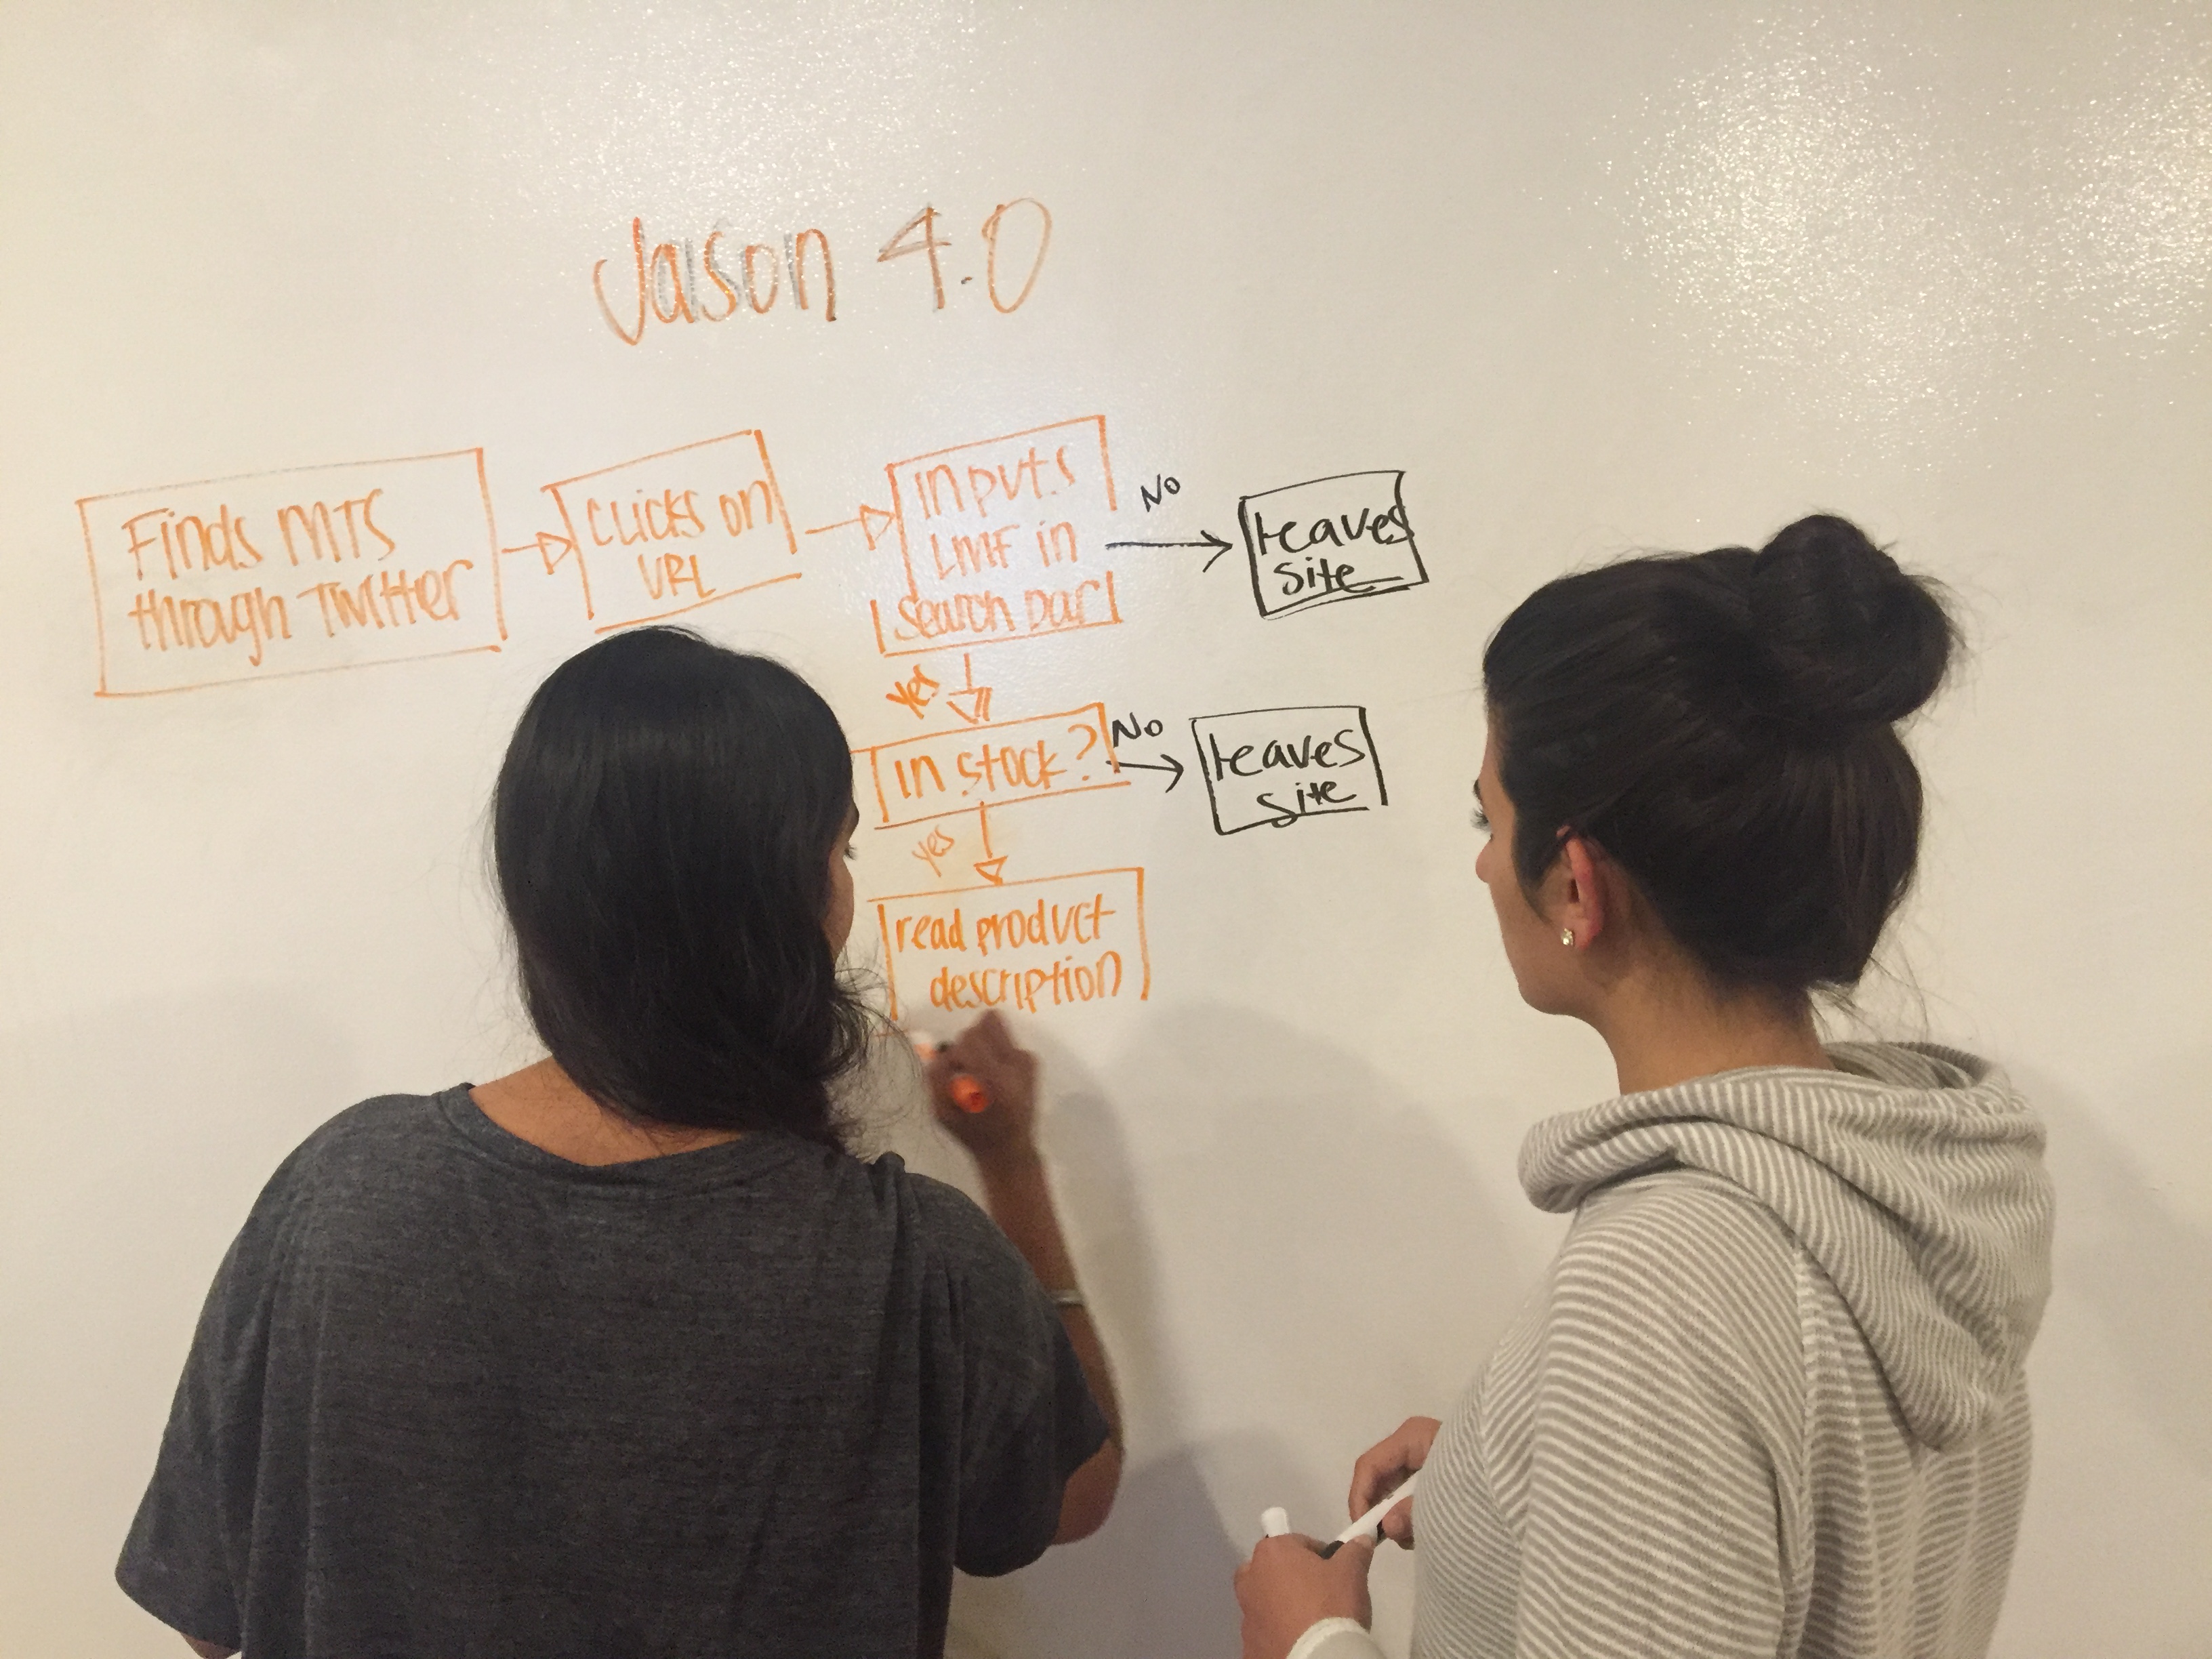 Jason 4.0
Finds MTS
through Twitter
clicks on
URL
inputs
LMF in
search bar
No
Leaves
site
yes
in stock?
No
Leaves
site
yes
read product
description